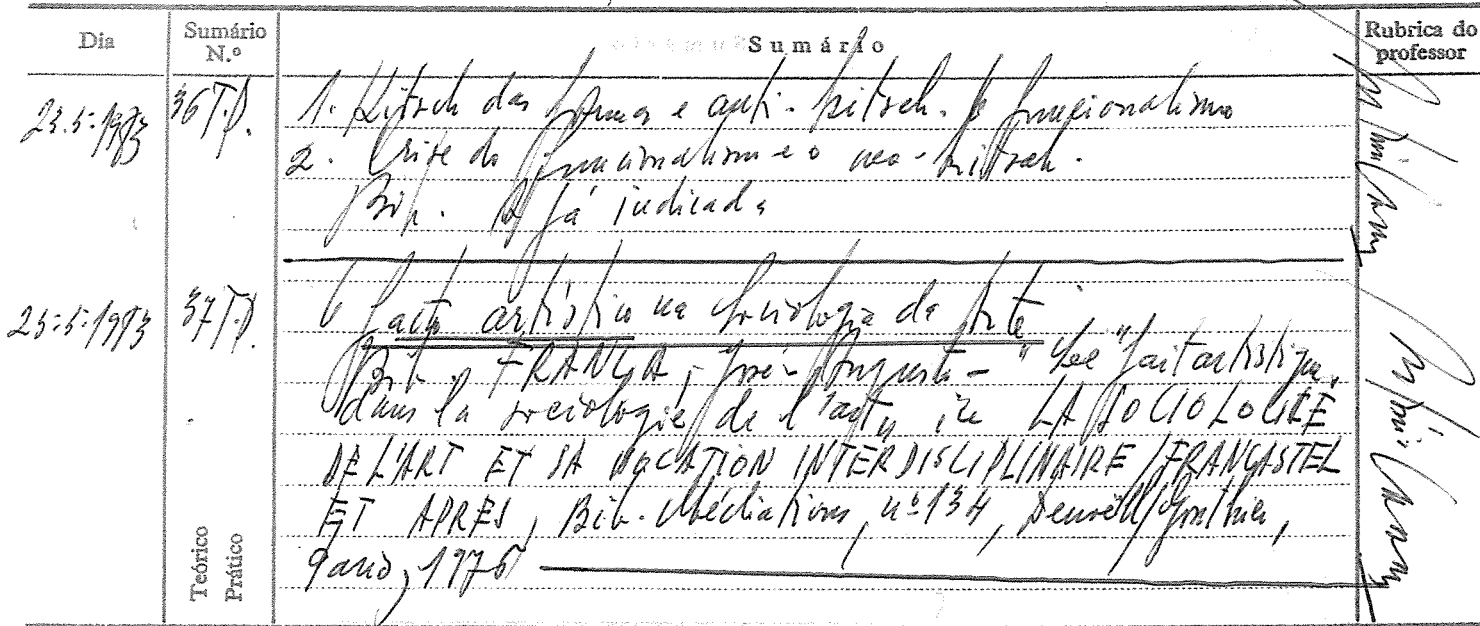 Dia
Sumário N.º
Sumário
Rubrica do professor
23-5-1983 36 T.P. 1. Kitsch das formas e anti-kitsch. O funcionalismo
2. Crise do funcionalismo e o neo-kitsch.
Bib. A já indicada
25-5-1983 37 T.P. O facto artístico na Sociologia da Arte
Bib. FRANÇA, José-Augusto - "Le fait artistique
dans la sociologie de l'art", in LA SOCIOLOGIE
DE L'ART ET SA VOCATION INTERDISCIPLINAIRE / FRANCASTEL
ET APRÈS, Bib. Médiations, nº 134, Denoël/Gonthier,
Paris, 1976
Teórico
Prático